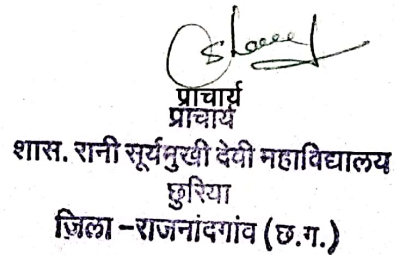 प्राचार्य
प्राचार्य
शास. रानी सूर्यमुखी देवी महाविद्यालय
छुरिया
ज़िला -राजनांदगांव (छ.ग.)